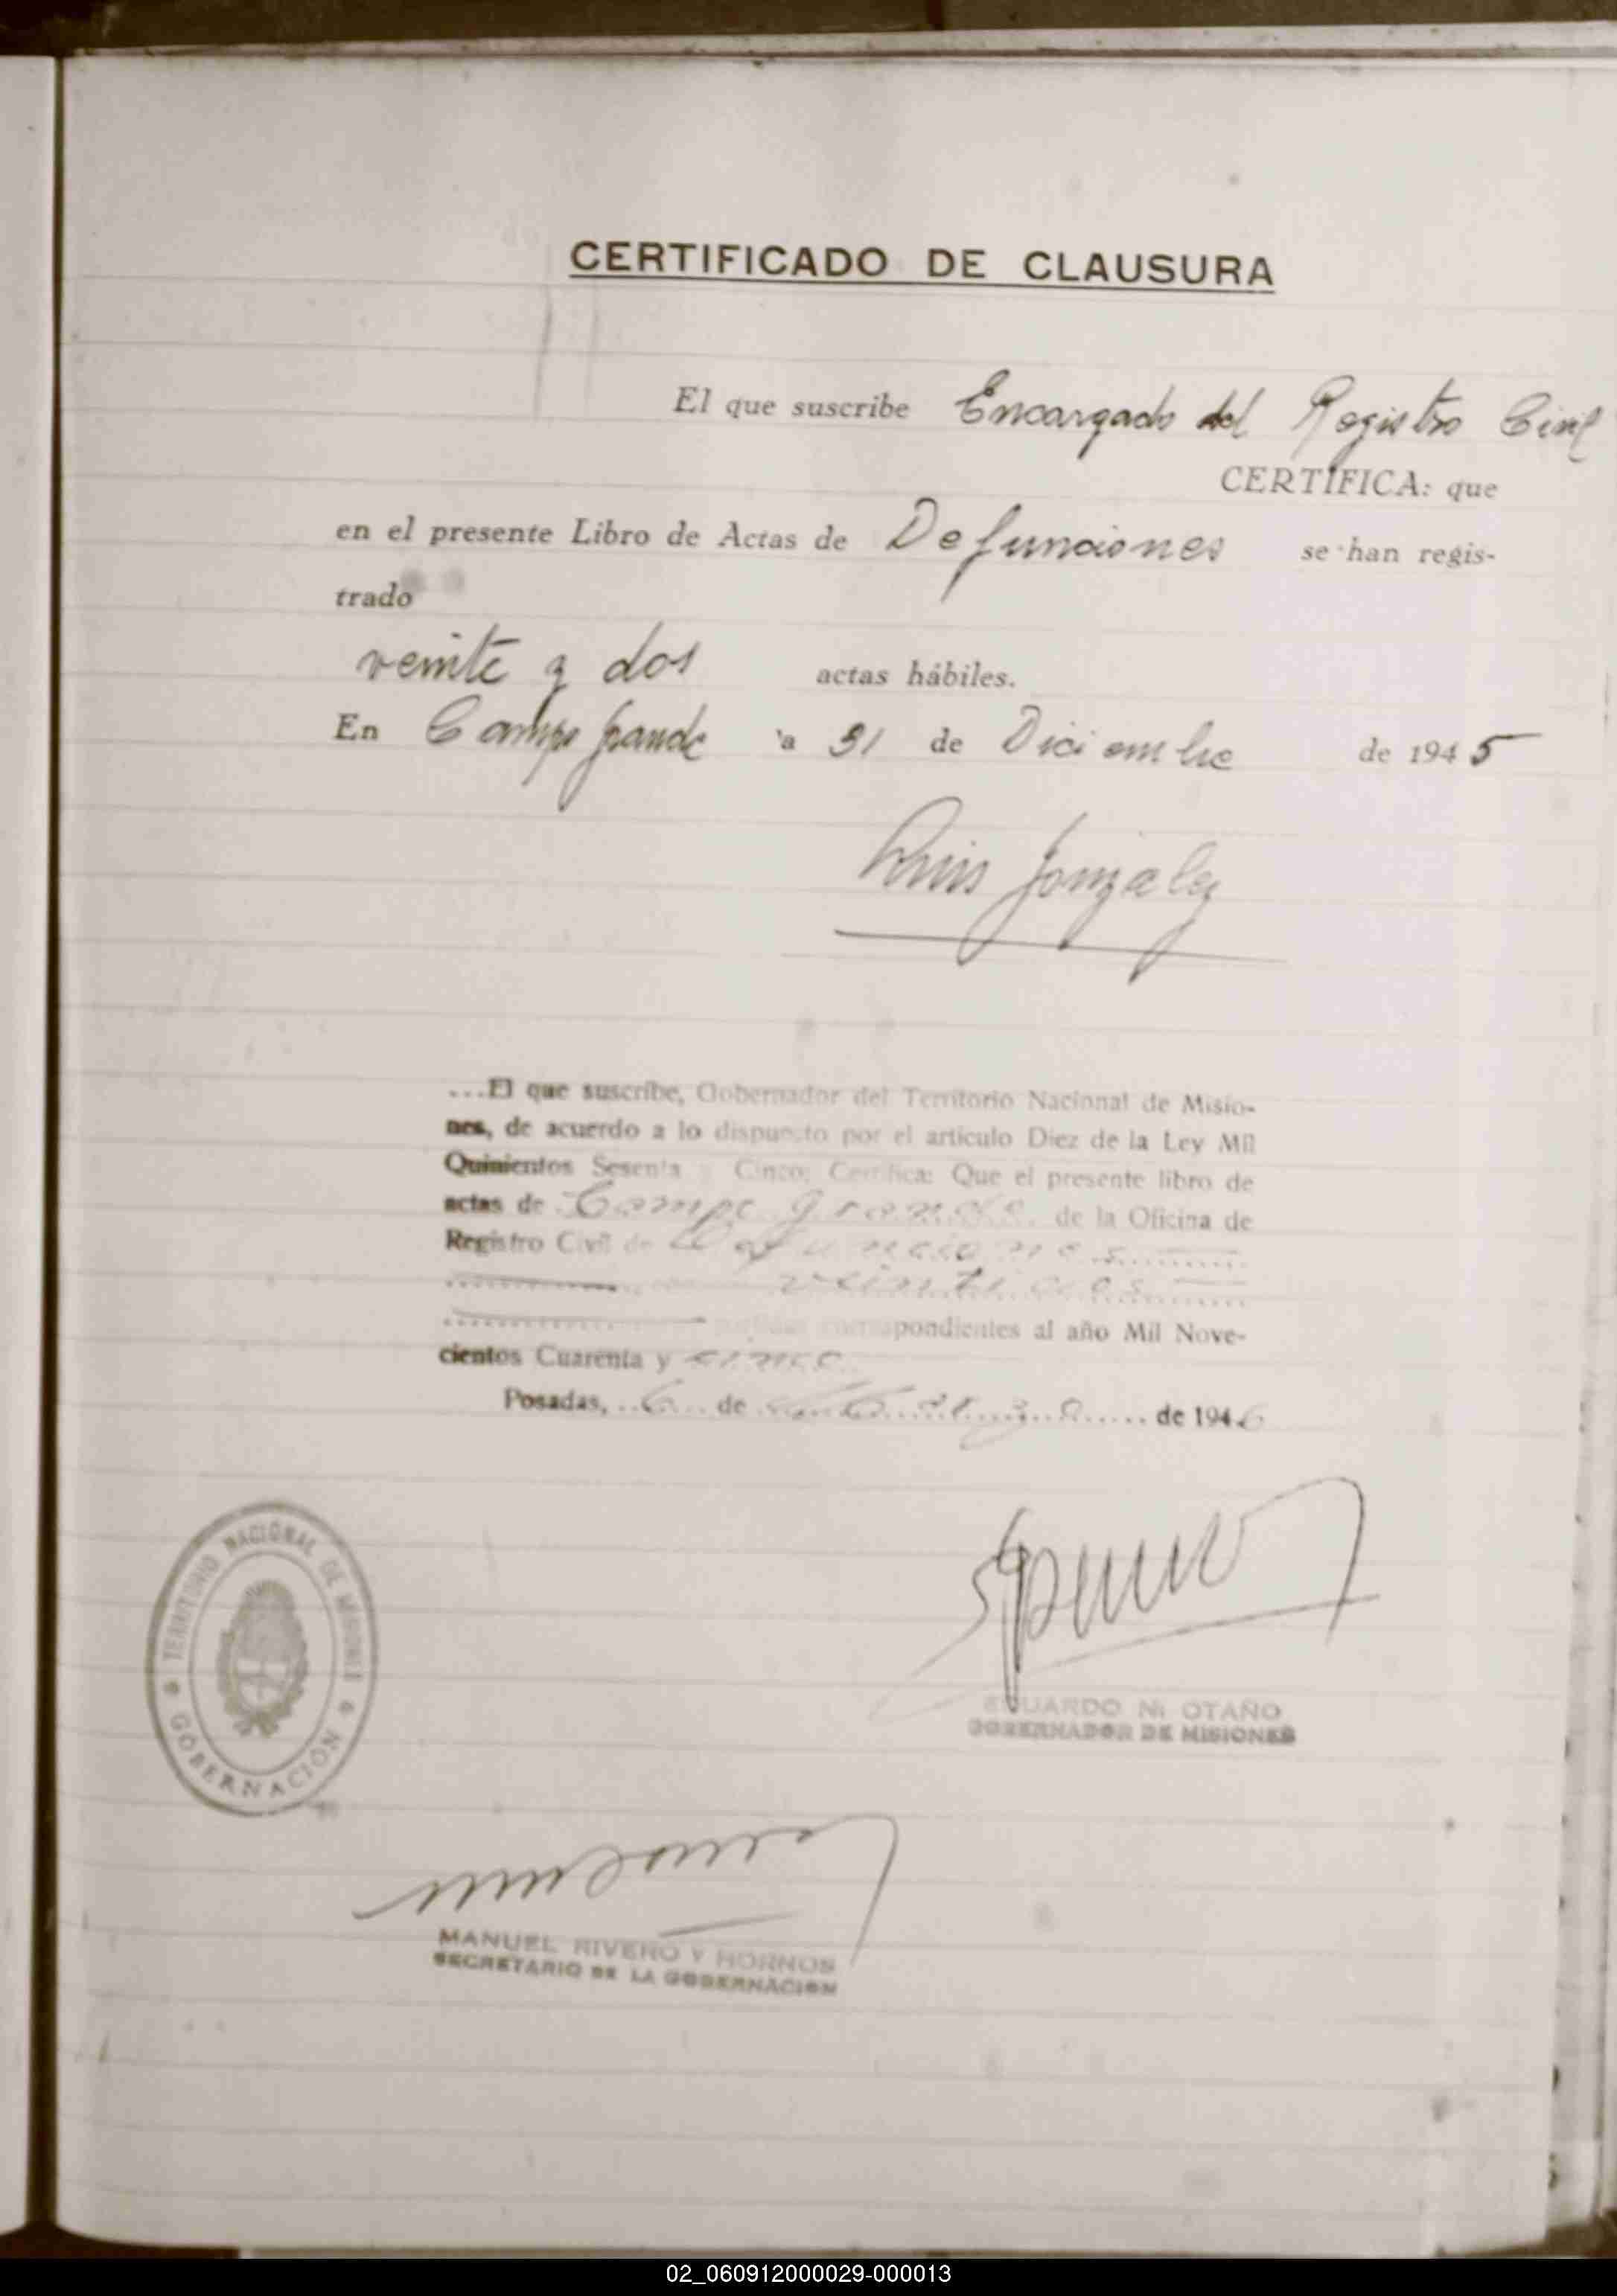 CERTIFICADO DE CLAUSURA
El que suscribe Encargado del Registro Civil
CERTIFICA: que
en el presente Libro de Actas de Defunciones se han regis-
trado
veinte y dos actas hábiles.
En Campo Grande a 31 de Diciembre de 1945
Luis Gonzalez
...El que suscribe, Gobernador del Territorio Nacional de Misio-
nes, de acuerdo a lo dispuesto por el artículo Diez de la Ley Mil
Quinientos Sesenta y Cinco; Certifica: Que el presente libro de
actas de Campo Grande de la Oficina de
Registro Civil de Defunciones
veintidos
partidas correspondientes al año Mil Nove-
cientos Cuarenta y cinco
Posadas, 6 de de 1946
TERRITORIO NACIONAL DE MISIONES
GOBERNACIÓN
EDUARDO N. OTAÑO
GOBERNADOR DE MISIONES
MANUEL RIVERO Y HORNOS
SECRETARIO DE LA GOBERNACION
02_060912000029-000013